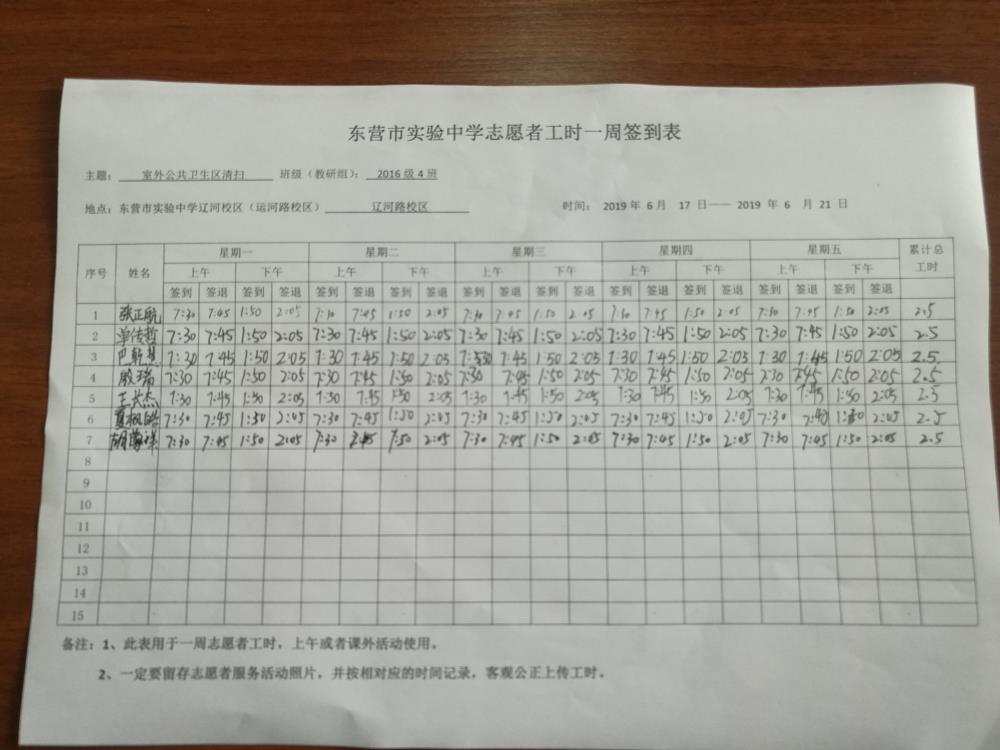 东营市实验中学志愿者工时一周签到表
主题： 室外公共卫生区清扫 班级（教研组）： 2016 级 4 班
地点：东营市实验中学辽河校区（运河路校区） 辽河路校区 时间： 2019 年 6 月 17 日—— 2019 年 6 月 21 日
序号 姓名 星期一 星期二 星期三 星期四 星期五 累计总工时
上午 下午 上午 下午 上午 下午 上午 下午 上午 下午
签到 签退 签到 签退 签到 签退 签到 签退 签到 签退 签到 签退 签到 签退 签到 签退 签到 签退 签到 签退
1 张正航 7:30 7:45 1:50 2:05 7:30 7:45 1:50 2:05 7:30 7:45 1:50 2:05 7:30 7:45 1:50 2:05 7:30 7:45 1:50 2:05 2.5
2 单传哲 7:30 7:45 1:50 2:05 7:30 7:45 1:50 2:05 7:30 7:45 1:50 2:05 7:30 7:45 1:50 2:05 7:30 7:45 1:50 2:05 2.5
3 7:30 7:45 1:50 2:05 7:30 7:45 1:50 2:05 7:45 1:50 2:05 7:30 7:45 1:50 2:05 7:30 7:45 1:50 2:05 2.5
4 殷瑞 7:30 7:45 1:50 2:05 7:30 7:45 1:50 2:05 7:30 7:45 1:50 2:05 7:30 7:45 1:50 2:05 7:30 7:45 1:50 2:05 2.5
5 王兴杰 7:30 7:45 1:50 2:05 7:30 7:45 1:50 2:05 7:30 7:45 1:50 2:05 7:30 7:45 1:50 2:05 7:30 7:45 1:50 2:05 2.5
6 7:30 7:45 1:50 2:05 7:30 7:45 1:50 2:05 7:30 7:45 1:50 2:05 7:30 7:45 1:50 2:05 7:30 1:50 2:05 2.5
7 7:30 7:45 1:50 2:05 7:30 1:50 2:05 7:30 7:45 1:50 2:05 7:30 7:45 1:50 2:05 7:30 7:45 1:50 2:05 2.5
8
9
10
11
12
13
14
15
备注：1、此表用于一周志愿者工时，上午或者课外活动使用。
2、一定要留存志愿者服务活动照片，并按相对应的时间记录，客观公正上传工时。